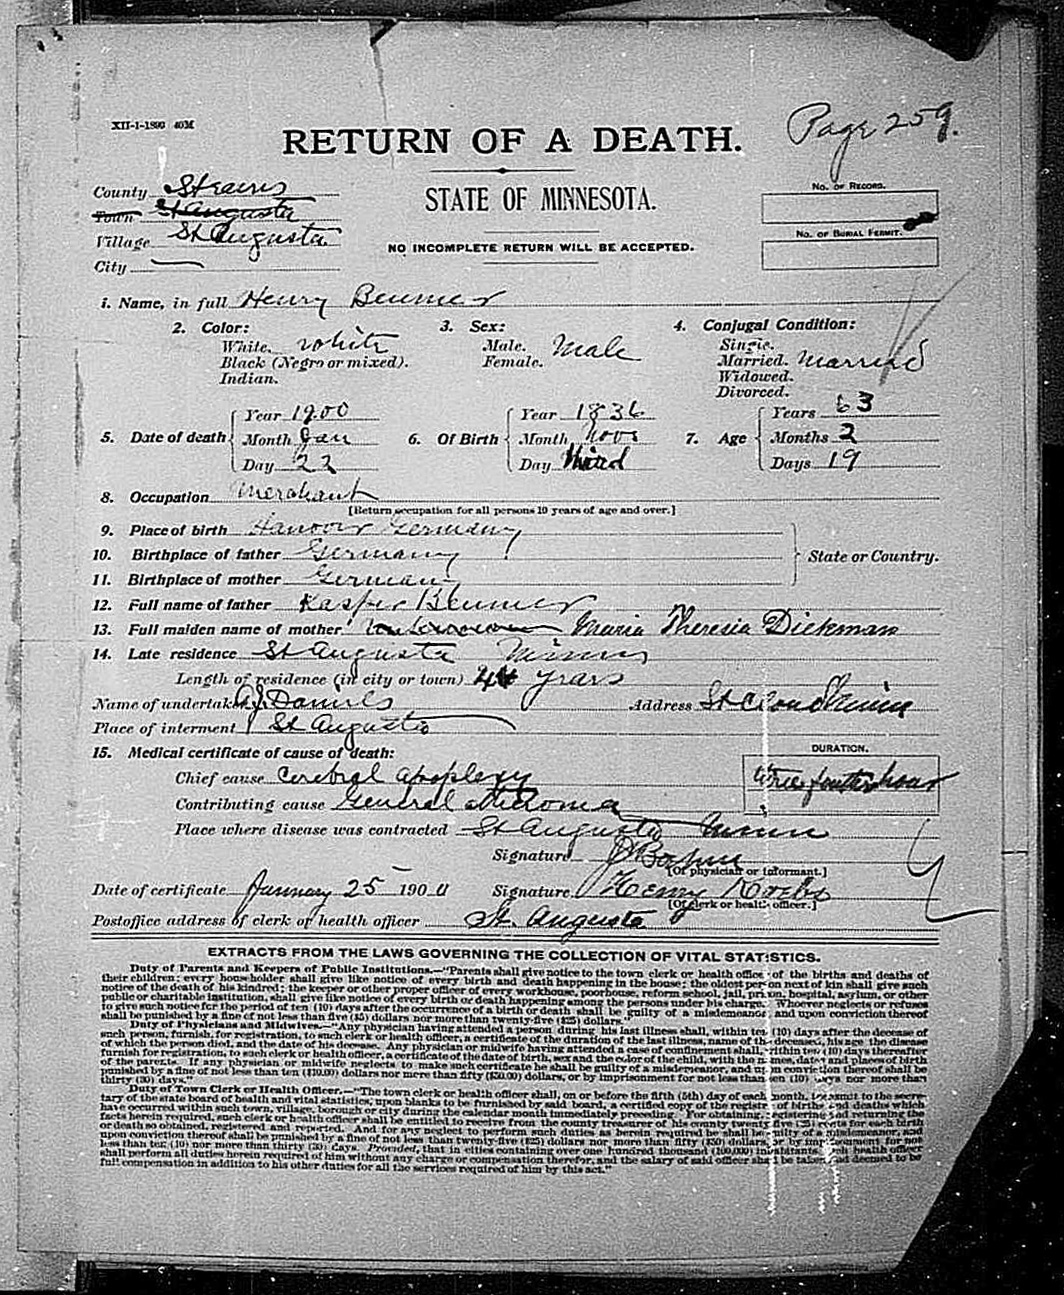 XII-1-1899 40M
Page 259.
RETURN OF A DEATH.
County Stearns
STATE OF MINNESOTA.
No. of Record.
Town St Augusta
Village St Augusta
No. of Burial Permit.
NO INCOMPLETE RETURN WILL BE ACCEPTED.
City
1. Name, in full Henry Beumer
2. Color: 3. Sex: 4. Conjugal Condition:
White. white Male. Male Single.
Black (Negro or mixed). Female. Married. Married
Indian. Widowed.
Divorced.
Year 1900 Year 1836 Years 63
5. Date of death Month Jan 6. Of Birth Month Novr 7. Age Months 2
Day 22 Day third Days 19
8. Occupation Merchant
[Return occupation for all persons 10 years of age and over.]
9. Place of birth Hanover Germany
10. Birthplace of father Germany State or Country.
11. Birthplace of mother Germany
12. Full name of father Kasper Beumer
13. Full maiden name of mother unknown Maria Theresia Dickman
14. Late residence St Augusta Minn
Length of residence (in city or town) 44 years
Name of undertaker Daniels Address St Cloud Minn
Place of interment St Augusta
15. Medical certificate of cause of death: DURATION.
Chief cause Cerebral apoplexy
Contributing cause General
Place where disease was contracted St Augusta Minn
Signature
[Of physician or informant.]
Date of certificate January 25 1900 Signature Henry
[Of clerk or health officer.]
Postoffice address of clerk or health officer St. Augusta
EXTRACTS FROM THE LAWS GOVERNING THE COLLECTION OF VITAL STATISTICS.
Duty of Parents and Keepers of Public Institutions.—"Parents shall give notice to the town clerk or health officer of the births and deaths of
their children; every householder shall give like notice of every birth and death happening in the house; the oldest person next of kin shall give such
notice of the death of his kindred; the keeper or other proper officer of every workhouse, poorhouse, reform school, jail, prison, hospital, asylum, or other
public or charitable institution, shall give like notice of every birth or death happening among the persons under his charge. Whoever neglects or refuses
to give such notice for the period of ten (10) days after the occurrence of a birth or death shall be guilty of a misdemeanor, and upon conviction thereof
shall be punished by a fine of not less than five ($5) dollars nor more than twenty-five ($25) dollars."
Duty of Physicians and Midwives.—"Any physician having attended a person during his last illness shall, within ten (10) days after the decease of
such person, furnish, for registration, to such clerk or health officer, a certificate of the duration of the last illness, name of the deceased, his age, the disease
of which the person died, and the date of his decease. Any physician or midwife having attended a case of confinement shall, within ten (10) days thereafter
furnish for registration, to such clerk or health officer, a certificate of the date of birth, sex and color of the child, with the names, dates and places of birth
of the parents. If any physician or midwife neglects to make such certificate he shall be guilty of a misdemeanor, and upon conviction thereof shall be
punished by a fine of not less than ten ($10.00) dollars nor more than fifty ($50.00) dollars, or by imprisonment for not less than ten (10) days nor more than
thirty (30) days."
Duty of Town Clerk or Health Officer.—"The town clerk or health officer shall, on or before the fifth (5th) day of each month, transmit to the secre-
tary of the state board of health and vital statistics, upon blanks to be furnished by said board, a certified copy of the register of births and deaths which
have occurred within such town, village, borough or city during the calendar month immediately preceding. For obtaining, registering and returning the
facts herein required, such clerk or health officer shall be entitled to receive from the county treasurer of his county twenty five (25) cents for each birth
or death so obtained, registered and reported. And for any neglect to perform such duties as herein required he shall be guilty of a misdemeanor, and
upon conviction thereof shall be punished by a fine of not less than twenty-five ($25) dollars nor more than fifty ($50) dollars, or by imprisonment for not
less than ten (10) nor more than thirty (30) days. Provided, that in cities containing over one hundred thousand (100,000) inhabitants such health officer
shall perform all duties herein required of him without any charge or compensation therefor, and the salary of said officer shall be taken and deemed to be
full compensation in addition to his other duties for all the services required of him by this act."